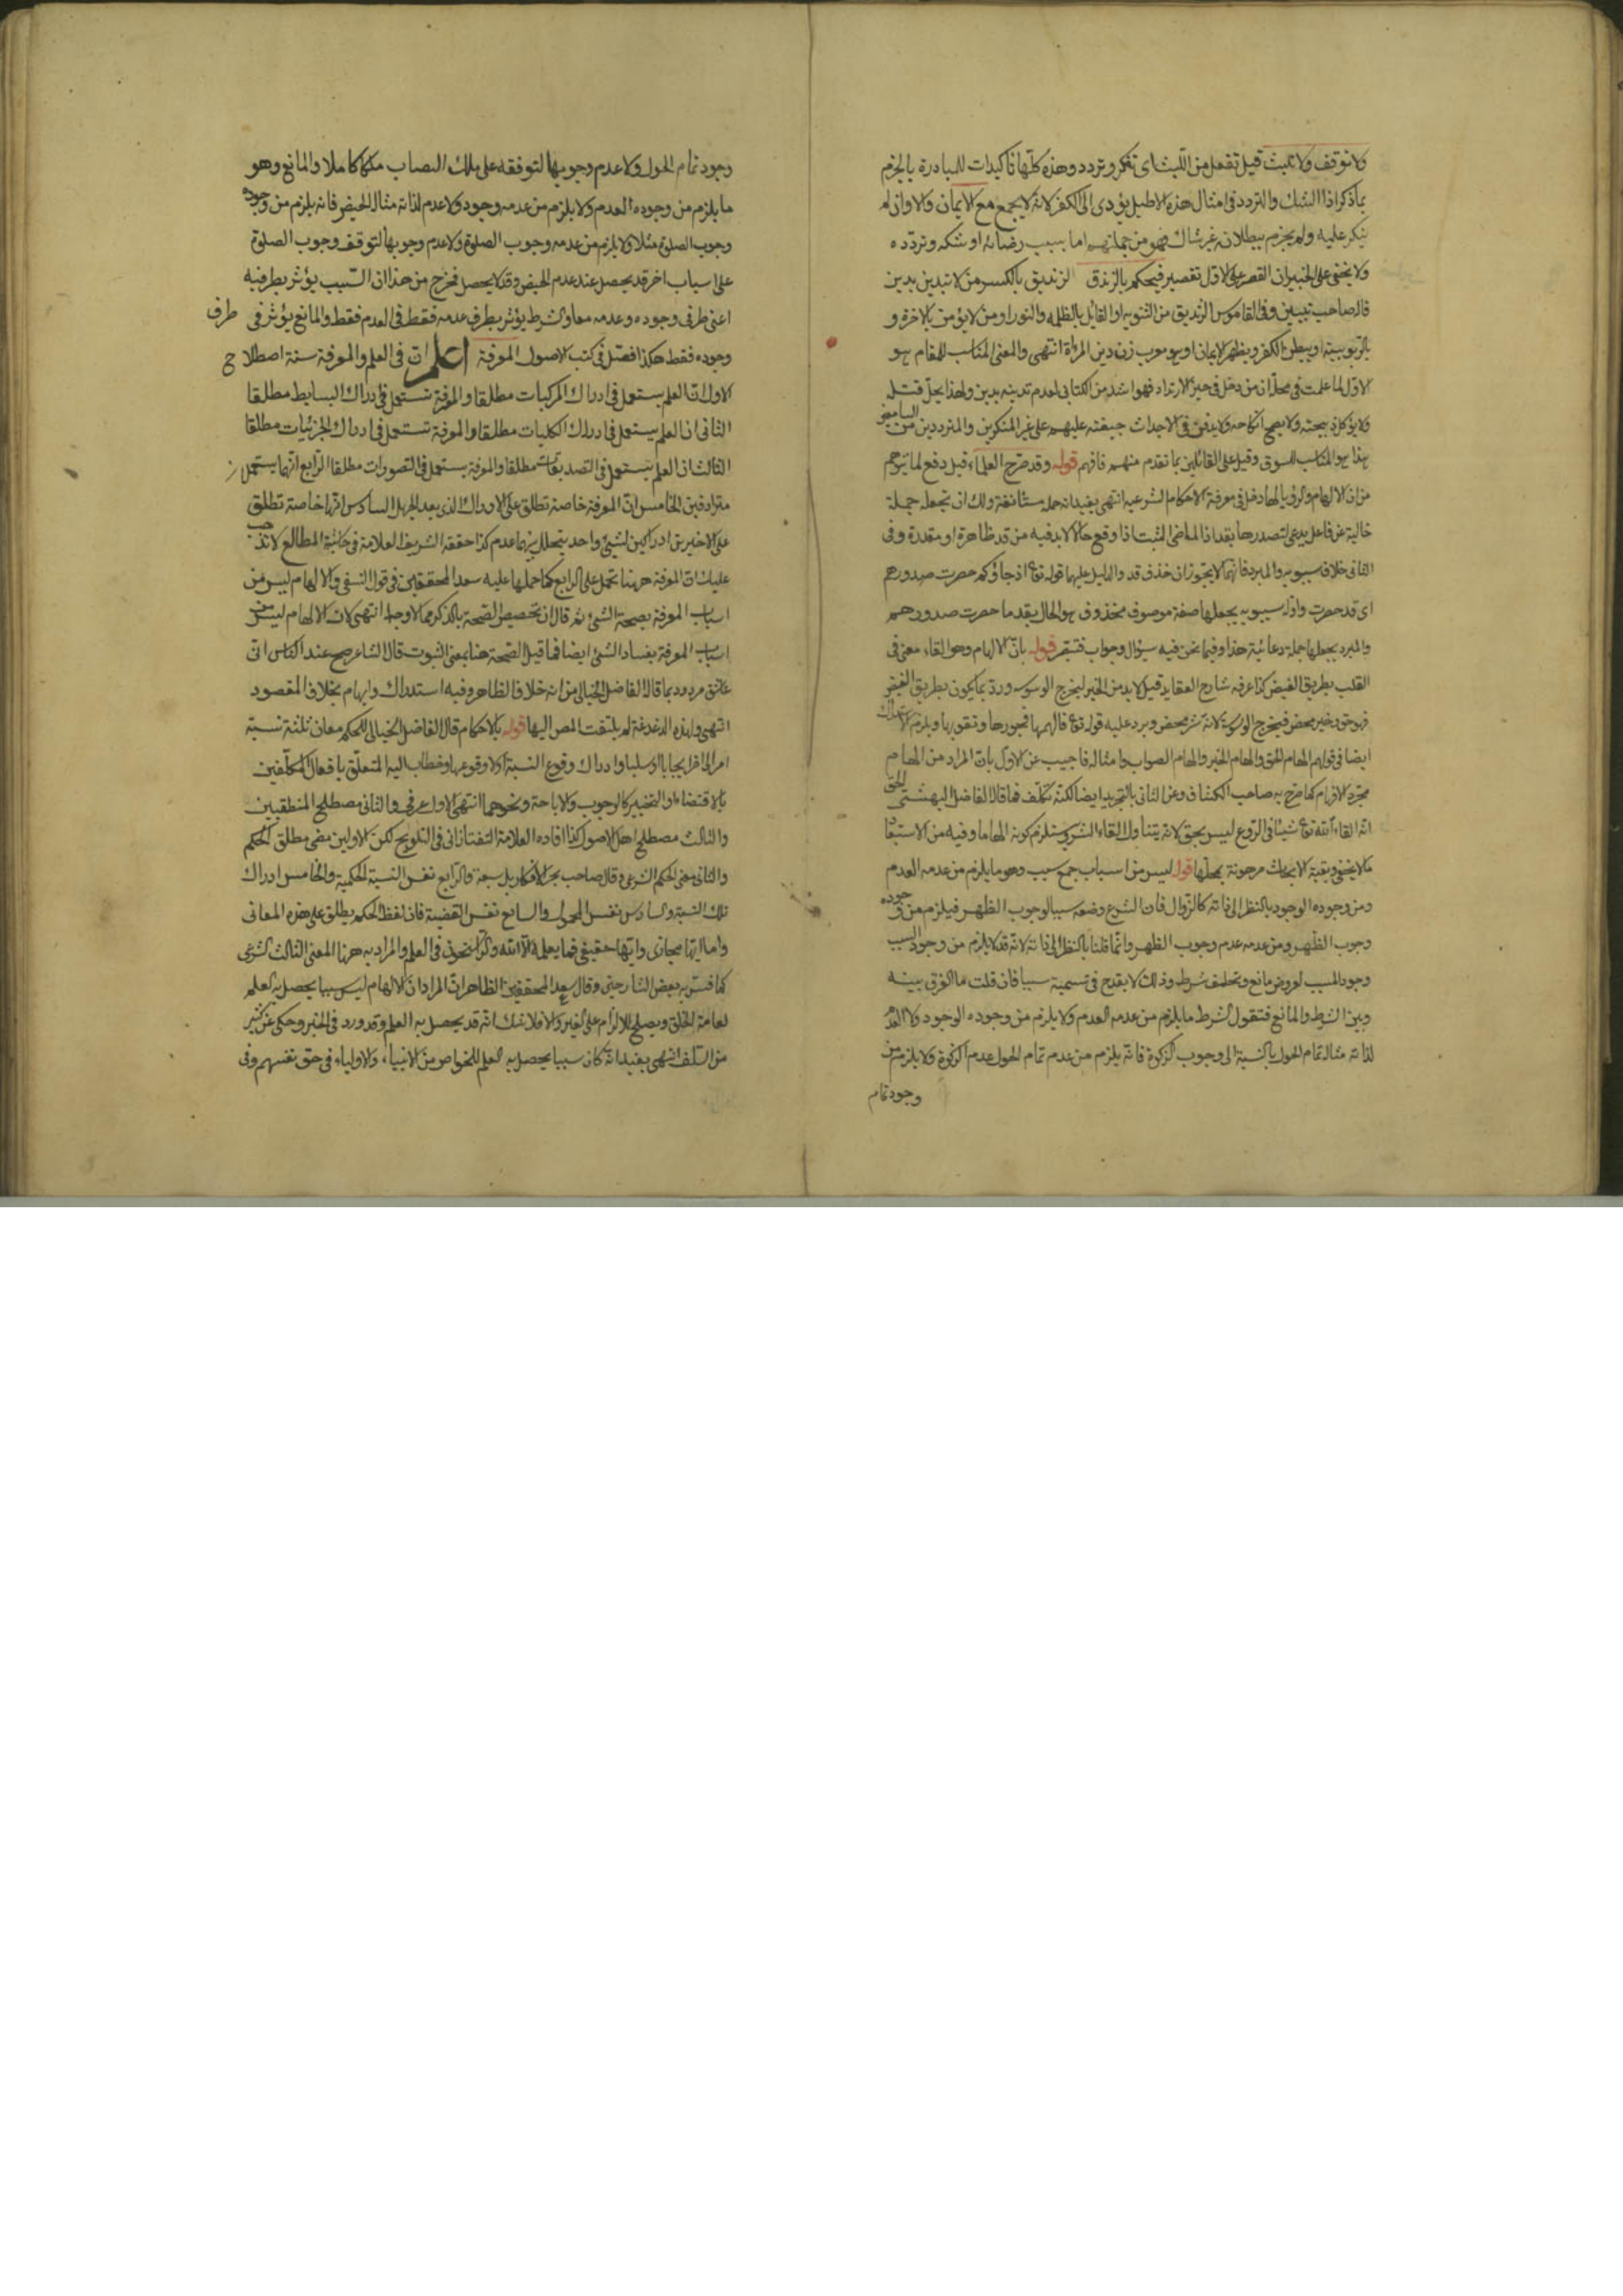 ولا توقف ولا تلبث قيل تفعل من اللبث اى تفكر وتردد وهذه كلها تأكيدات للمبادرة بالجزم
بما ذكر اذ الشك والتردد فى امثال هذه الاباطيل يؤدى الى الكفر لانه لا يجمع مع الايمان والا وان لم
ينكر عليه ولم يجزم ببطلانه غير شاك فهو من جملتهم اما بسبب رضائه او شكه وتردده
ولا يخفى على الخبير ان القصر على الاول تقصير فيحكم بالزندق الزنديق بالكسر من لا تبدين بدين
قال صاحب تبيين وفى القاموس الزنديق من الثنويه او القائل بالظلمه والنور او من لا يؤمن بالاخرة و
بالربوبية او يبطن الكفر ويظهر الايمان او هو معرب زن دين المرأة انتهى والمعنى المناسب للمقام هو
الاول لما علمت فى محله ان من دخل فى حيز الارتداد فهو اشد من الكتابى لعدم تدينه بدين ولهذا يحل قتله
ولا يؤكل ذبيحته ولا يصح انكاحه ولا يدفن فى الاجداث جيفته عليهم على غير المنكرين والمترددين من السامعين
هذا هو المناسب للسوق وقيل على القائلين بما تقدم منهم فافهم قوله وقد صرح العلماء قيل دفع لما يتوهم
من ان الالهام والرؤيا لهما دخل فى معرفة الاحكام الشرعيه انتهى يفيد انه جملة مستأنفة ولك ان تجعله جملة
حالية عن فاعل يدعى لتصدرها بقد اذ الماضى المثبت اذا وقع حالا لا بد فيه من قد ظاهرة او مقدرة وفى
الثانى خلاف سيبويه والمبرد فانهما لا يجوزان حذف قد والدليل عليهما قوله تع او جاؤكم حصرت صدورهم
اى قد حصرت واوله سيبويه بجعلها صفة موصوف محذوف هو الحال بقوما حصرت صدورهم
والمبرد بجعلها جملة دعائية هذا وفيما نحن فيه سؤال وجواب فتبقر قوله بان الالهام وهو القاء معنى فى
القلب بطريق الفيض كذا عرفه شارح العقايد قيل لا بد من الخير ليخرج الوسوسه ورد بما يكون بطريق الفيض
فهو حق وخير محض فيخرج الوسوسة لانه شر محض ويرد عليه قوله تع فالهمها فجورها وتقويها ويلزم الاستدراك
ايضا فى قولهم الهام الحق والهام الخير والهام الصواب وامثاله فاجيب عن الاول بان المراد من الهام
مجرد الافهام كما صرح به صاحب الكشاف وعن الثانى بالتجريد ايضا لكنه تكلف فما قال الفاضل البهشتى الحق
انه القاء الله تع شيئا فى الروع ليس بحق لانه يتناول القاء الشر ويستلزم كونه الهاما وفيه من الاستبعاد
ما لا يخفى وبقية الابحاث مرهونة بمحلها قوله ليس من اسباب جمع سبب وهو ما يلزم من عدمه العدم
ومن وجوده الوجود بالنظر الى ذاته كالزوال فان الشرع وضعه سببا لوجوب الظهر فيلزم من وجوده
وجوب الظهر ومن عدمه عدم وجوب الظهر وانما قلنا بالنظر الى ذاته لانه قد لا يلزم من وجود السبب
وجود المسبب لعروض مانع وتخلف شرط وذلك لا يقدح فى تسمية سببا فان قلت ما الفرق بينه
وبين الشرط والمانع فتقول الشرط ما يلزم من عدمه العدم ولا يلزم من وجوده الوجود ولا العدم
لذاته مثاله تمام الحول بالنسبة الى وجوب الزكوة فانه يلزم من عدم تمام الحول عدم الزكوة ولا يلزم من
وجود تمام
وجود تمام الحول ولا عدم وجوبها لتوقفه على ملك النصاب ملكا كاملا والمانع وهو
ما يلزم من وجوده العدم ولا يلزم من عدمه وجود ولا عدم لذاته مثاله الحيض فانه يلزم من وجوده
وجوب الصلوة مثلا ولا يلزم من عدمه وجوب الصلوة ولا عدم وجوبها لتوقف وجوب الصلوة
على اسباب اخر قد يحصل عند عدم الحيض وقد لا يحصل فخرج من هذا ان السبب يؤثر بطرفيه
اعنى طرفى وجوده وعدمه معا والشرط يؤثر بطرف عدمه فقط فى العدم فقط والمانع يؤثر فى طرف
وجوده فقط هكذا فصل فى كتب الاصول المعرفة اعلم ان فى العلم والمعرفة ستة اصطلاح
الاول ان العلم يستعمل فى ادراك المركبات مطلقا والمعرفة تستعمل فى ادراك البسايط مطلقا
الثانى ان العلم يستعمل فى ادراك الكليات مطلقا والمعرفة تستعمل فى ادراك الجزئيات مطلقا
الثالث ان العلم يستعمل فى التصديقات مطلقا والمعرفة يستعمل فى التصورات مطلقا الرابع انهما يستعملان
مترادفين الخامس ان المعرفة خاصة تطلق على الادراك الذى بعد الجهل السادس انها خاصة تطلق
على الاخير من ادراكين لشئ واحد يتخلل بينهما عدم كذا حققه الشريف العلامة فى حاشية المطالع لا تذهب
عليك ان المعرفة ههنا تحمل على الرابع كما حملها عليه سعد المحققين فى قول النسفى والالهام ليس من
اسباب المعرفة بصحة الشئ ثم قال ان تخصيص الصحة بالذكر مما لا وجه له انتهى لان الالهام ليس من
اسباب المعرفة بفساد الشئ ايضا فما قيل الصحة هنا بمعنى الثبوت قال الشاعر صح عند الناس انى
عاشق مردود بما قال الفاضل الخيالى من انه خلاف الظاهر وفيه استدراك وايهام بخلاف المقصود
انتهى ولهذه الدغدغة لم يلتفت المص اليها قوله بالاحكام قال الفاضل الخيالى للحكم معان ثلثة نسبة
امر الى اخر ايجابا او سلبا وادراك وقوع النسبة او لا وقوعها وخطاب الله المتعلق بافعال المكلفين
بالاقتضاء او التخيير كالوجوب والاباحة ونحوهما انتهى الاول عرفى والثانى مصطلح المنطقيين
والثالث مصطلح اهل الاصول كذا افاده العلامة التفتازانى فى التلويح لكن الاولين معنى مطلق الحكم
والثانى معنى الحكم الشرعى وقال صاحب بحر الافكار بل سبعة والرابع نفس النسبة الحكمية والخامس ادراك
تلك النسبة والسادس نفس المحمول والسابع نفس القضية فان لفظ الحكم يطلق على هذه المعانى
واما ايها مجازى وايها حقيقى فما يعلمه الا الله والراسخون فى العلم والمراد به ههنا المعنى الثالث الشرعى
كما فسر به بعض الشارحين وقال سعد المحققين الظاهر ان المراد ان الالهام ليس سببا يحصل به العلم
لعامة الخلق ويصلح للالزام على الغير والا فلا شك انه قد يحصل به العلم وقد ورد فى الخبر وحكى عن كثير
من السلف انتهى يفيد انه كان سببا يحصل به العلم للخواص من الانبياء والاولياء فى حق نفسهم وفى